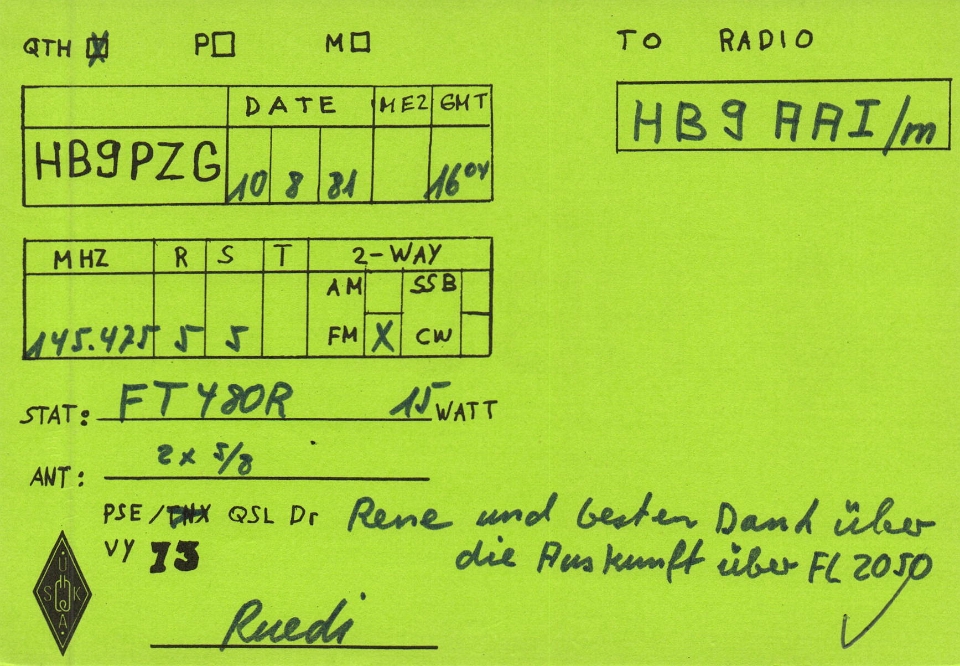 QTH ☒ P☐ M☐
TO RADIO
DATE MEZ GMT
HB9PZG 10 8 81 16⁰⁴
HB9AAI/m
MHZ R S T 2-WAY
AM SSB
145.475 5 5 FM X CW
STAT: FT480R 15 WATT
ANT: 2x 5/8
PSE/TNX QSL Dr Rene und besten Dank über
VY 73 die Auskunft über FL 2050
USKA
Ruedi